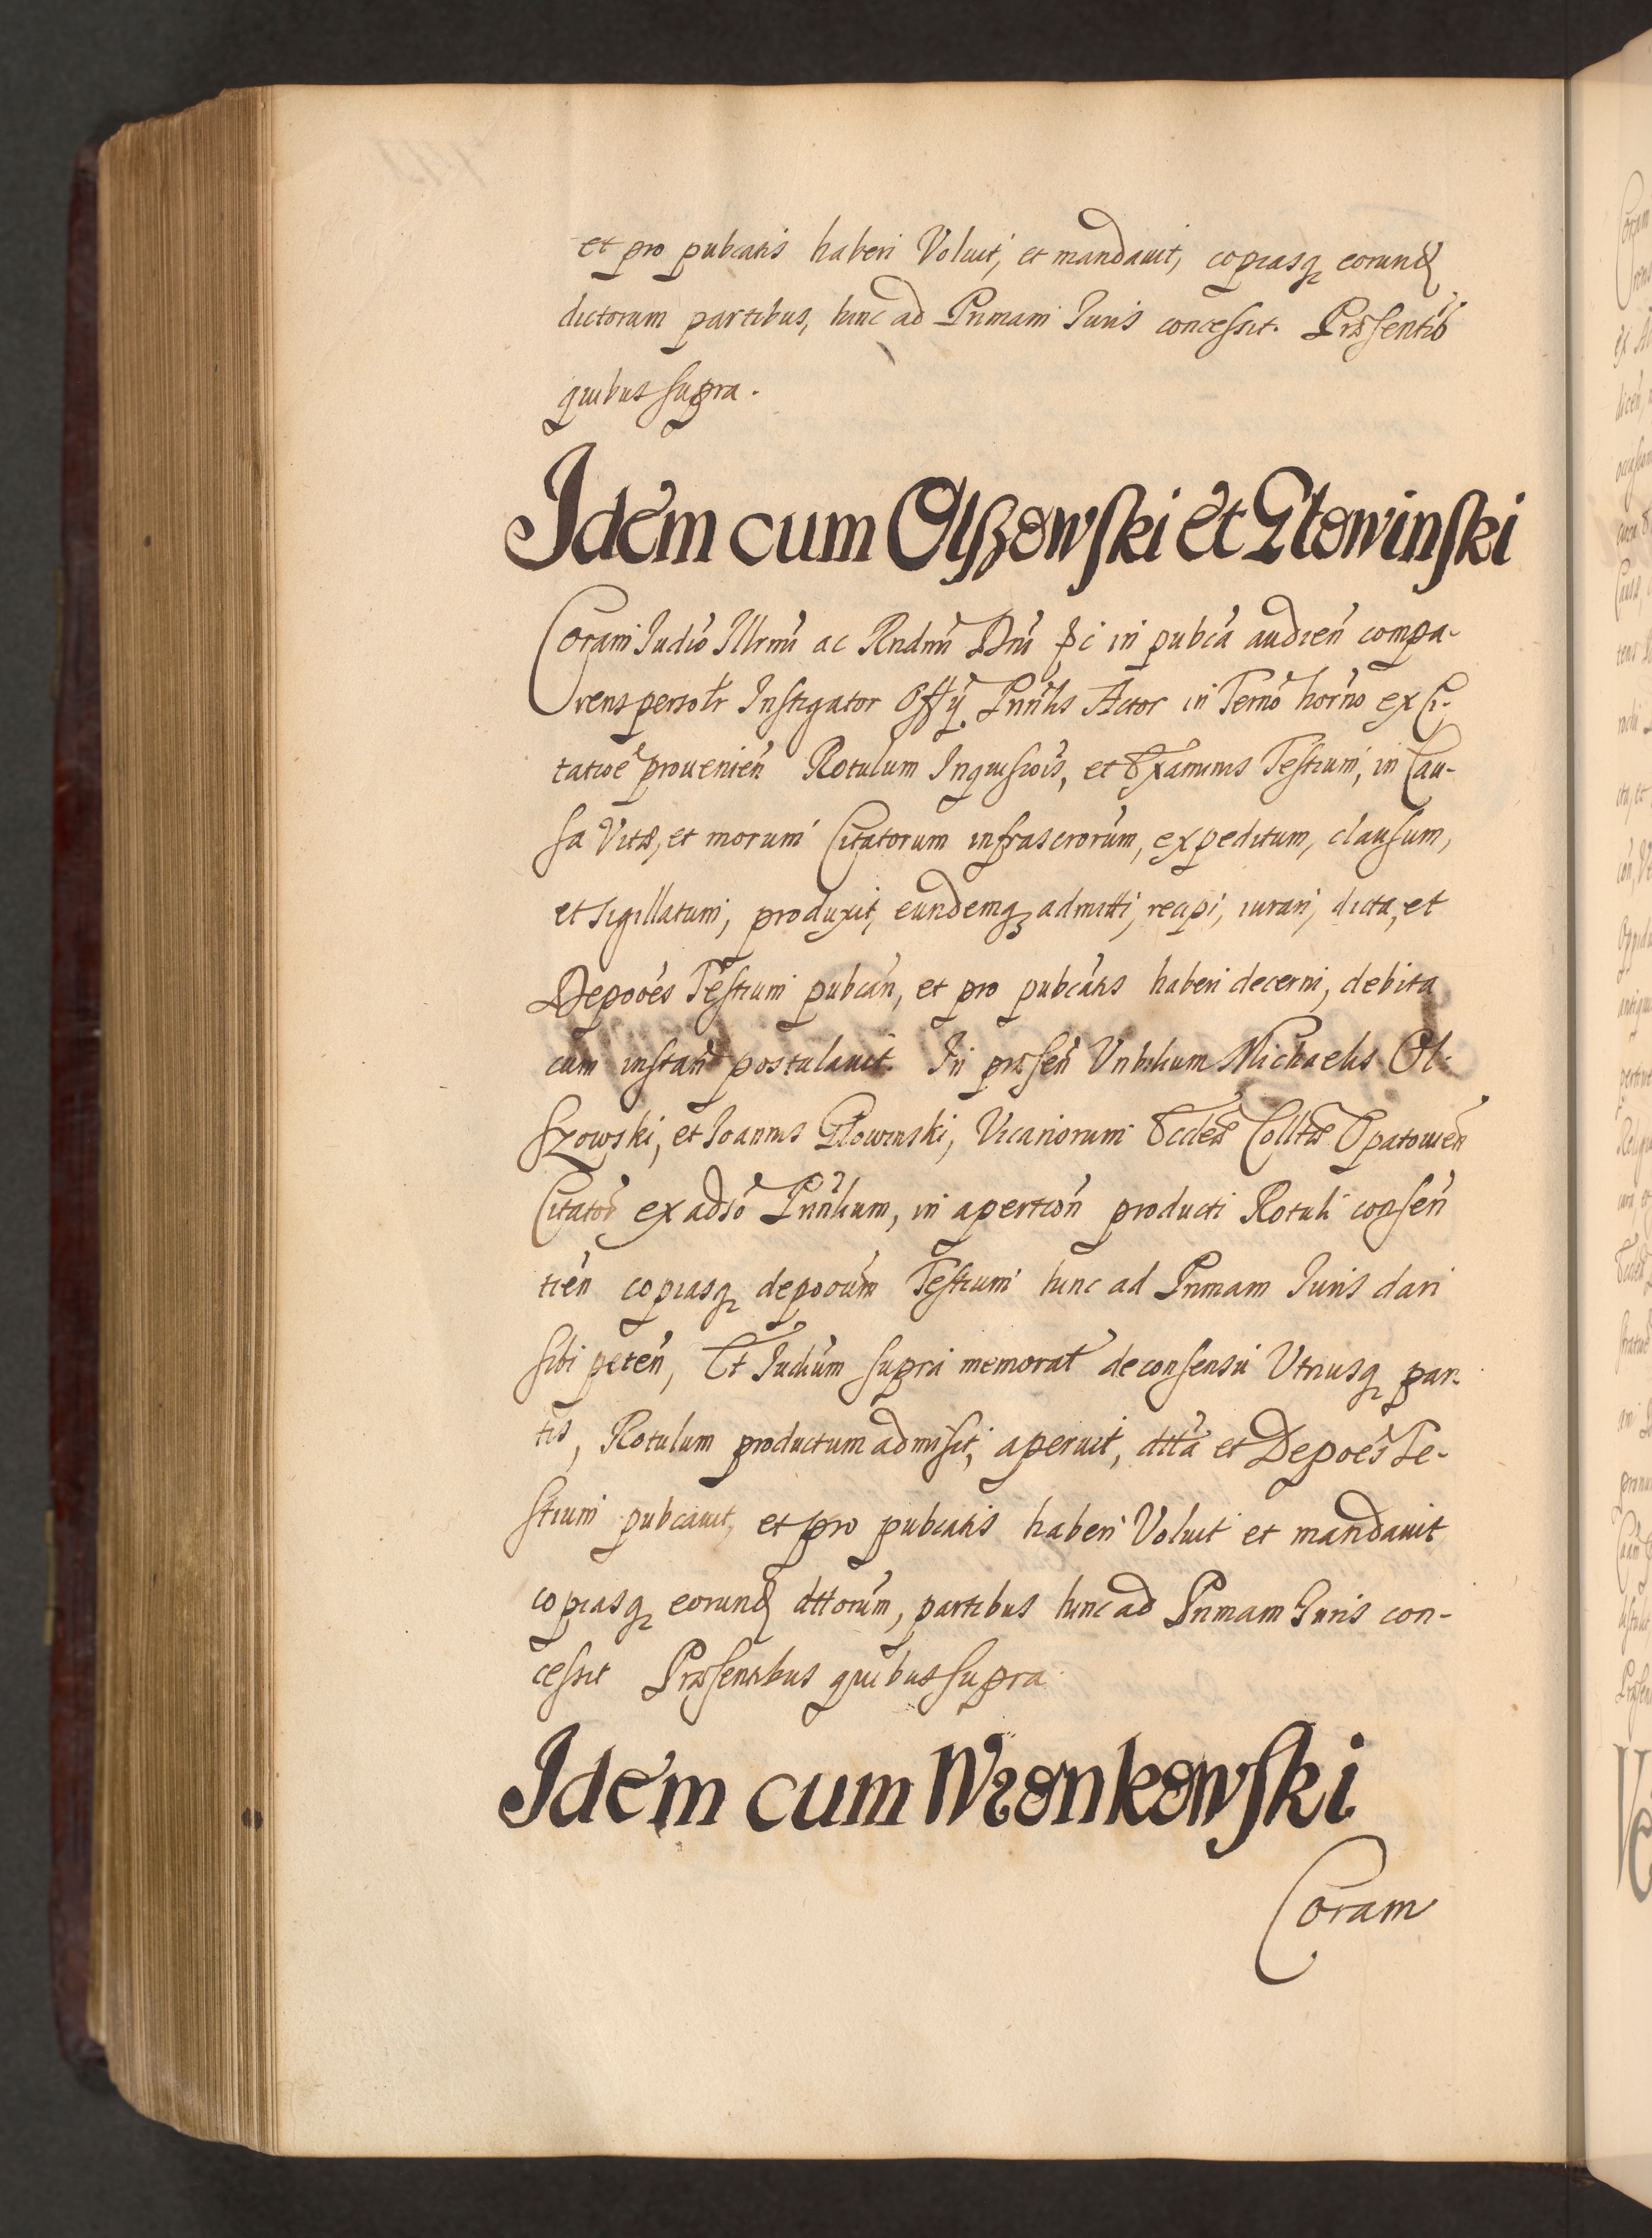 et pro pubcatis haberi Voluit, et mandauit, copiasq eorund
dictorum partibus, hinc ad Primam Iuris concessit. Præsentib
quibus supra.
Idem cum Olszowski et Głowinski
Coram Iudio Illrmi ac Rndmi Dni in pubca audien compa-
rens persolr Instigator Offy Pnnlis Actor in Terno horno ex Ci-
tatioe prouenien Rotulum Inquisiois, et Examinis Testium, in Cau-
sa Vitæ, et morum Citatorum infrascrorum, expeditum, clausum,
et sigillatum, produxit, eundemq admitti, recipi, iurari, dicta, et
Depoões Testium pubcan, et pro pubcatis haberi decerni, debita
cum instan postulauit. In præsen Vnbilium Michaelis Ol-
szowski, et Ioannis Głowinski, Vicariorum Eccleæ Colltæ Opatouien
Citator ex adso Pnnlium, in apertion producti Rotuli consen
tien copiasq depooum Testium hinc ad Primam Iuris dari
sibi peten, Et Iudium supra memorat de consensu Vtriusq par-
tis, Rotulum productum admisit, aperuit, dtta et Depoes Te-
stium pubcauit, et pro pubcatis haberi Voluit et mandauit
copiasq eorund dttorum, partibus hinc ad Primam Iuris con-
cessit Præsentibus quibus supra
Idem cum Wronkowski
Coram